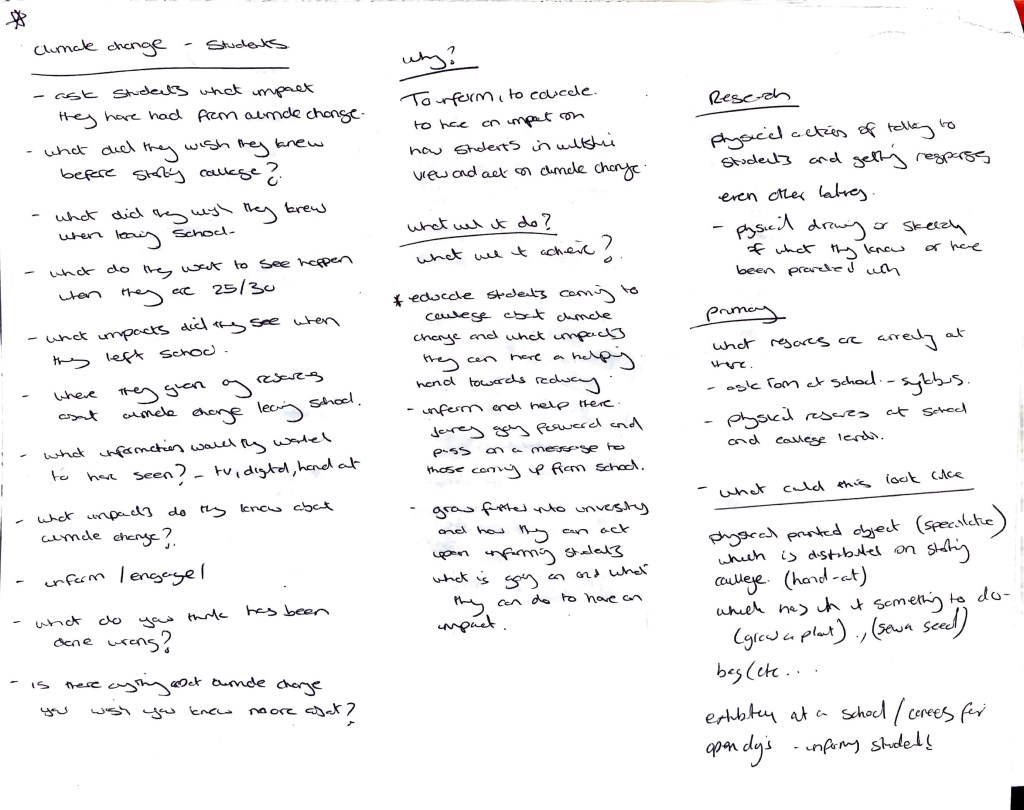 climate change - students
- ask students what impact
they have had from climate change.
- what did they wish they knew
before starting college?
- what did they wish they knew
when leaving school-
- what do they want to see happen
when they are 25/30
- what impacts did they see when
they left school.
- where they given any resources
about climate change leaving school.
- what information would they wanted
to have seen? - tv, digital, hand out
- what impacts do they know about
climate change?
- inform / engage /
- what do you think has been
done wrong?
- is there anything about climate change
you wish you knew more about?
why?
To inform, to educate.
to have an impact on
how students in wiltshire
view and act on climate change.
what will it do?
what will it achieve?
* educate students coming to
college about climate
change and what impacts
they can have a helping
hand towards reducing.
- inform and help there
journey going forward and
pass on a message to
those coming up from school.
- grow further into university
and how they can act
upon informing students
what is going on and what
they can do to have an
impact.
Research
physical action of talking to
students and getting responses
even other
- physical drawing or sketch
of what they know or have
been provided with
primary
what resources are already at
there.
- ask Tom at school - syllabus.
- physical resources at school
and college
- what could this look like
physical printed object (speculative)
which is distributed on starting
college. (hand-out)
which has with it something to do-
(grow a plant)., (sew a seed)
bag (etc...
exhibitry at a school / careers fair
open days - informing students!